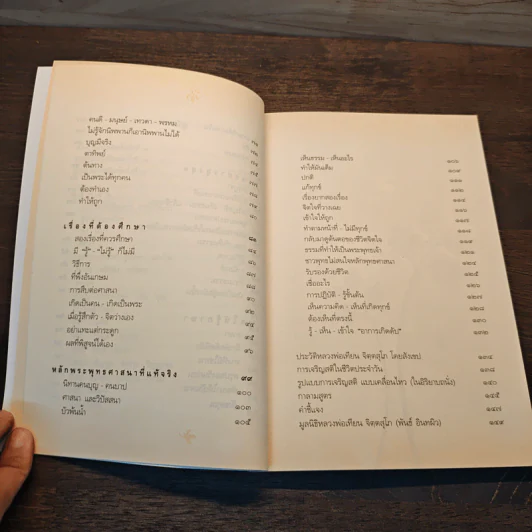 คนดี - มนุษย์ - เทวดา - พรหม
ไม่รู้จักนิพพานก็เอานิพพานไม่ได้
บุญมีจริง
ตาทิพย์
ต้นทาง
เป็นพระได้ทุกคน
ต้องทำเอง
ทำให้ถูก ๘๐
เรื่องที่ต้องศึกษา ๘๑
สองเรื่องที่ควรศึกษา
มี "รู้" - "ไม่รู้" ก็ไม่มี
วิธีการ
ที่พึ่งอันเกษม
การสืบต่อศาสนา
เกิดเป็นคน - เกิดเป็นพระ ๙๐
เมื่อรู้สึกตัว - จิตว่างเอง ๙๒
อย่าแทะแต่กระดูก ๙๔
ผลที่พิสูจน์ได้เอง ๙๕
๙๖
หลักพระพุทธศาสนาที่แท้จริง ๙๙
นิทานคนบุญ - คนบาป ๑๐๐
ศาสนา และวิปัสสนา ๑๐๓
บัวพ้นน้ำ ๑๐๕
เห็นธรรม - เห็นอะไร ๑๐๖
ทำให้มันเต็ม ๑๐๙
ปกติ ๑๑๑
แก้ทุกข์ ๑๑๒
เรื่องยากสองเรื่อง ๑๑๔
จิตใจที่วางเฉย
เข้าใจให้ถูก
ทำตามหน้าที่ - ไม่มีทุกข์
กลับมาดูต้นตอของชีวิตจิตใจ
ธรรมที่ทำให้เป็นพระพุทธเจ้า
ชาวพุทธไม่สนใจหลักพุทธศาสนา ๑๒๔
รับรองด้วยชีวิต ๑๒๕
เชื่ออะไร ๑๒๖
การปฏิบัติ - รู้ขั้นต้น ๑๒๗
เห็นความคิด - เห็นที่เกิดทุกข์ ๑๒๘
ต้องเห็นที่ตรงนี้ ๑๓๐
รู้ - เห็น - เข้าใจ "อาการเกิดดับ" ๑๓๒
ประวัติหลวงพ่อเทียน จิตฺตสุโภ โดยสังเขป ๑๓๔
การเจริญสติในชีวิตประจำวัน ๑๓๘
รูปแบบการเจริญสติ แบบเคลื่อนไหว (ในอิริยาบถนั่ง) ๑๔๐
กาลามสูตร ๑๔๕
คำชี้แจง ๑๔๗
มูลนิธิหลวงพ่อเทียน จิตฺตสุโภ (พันธ์ อินทผิว) ๑๔๙